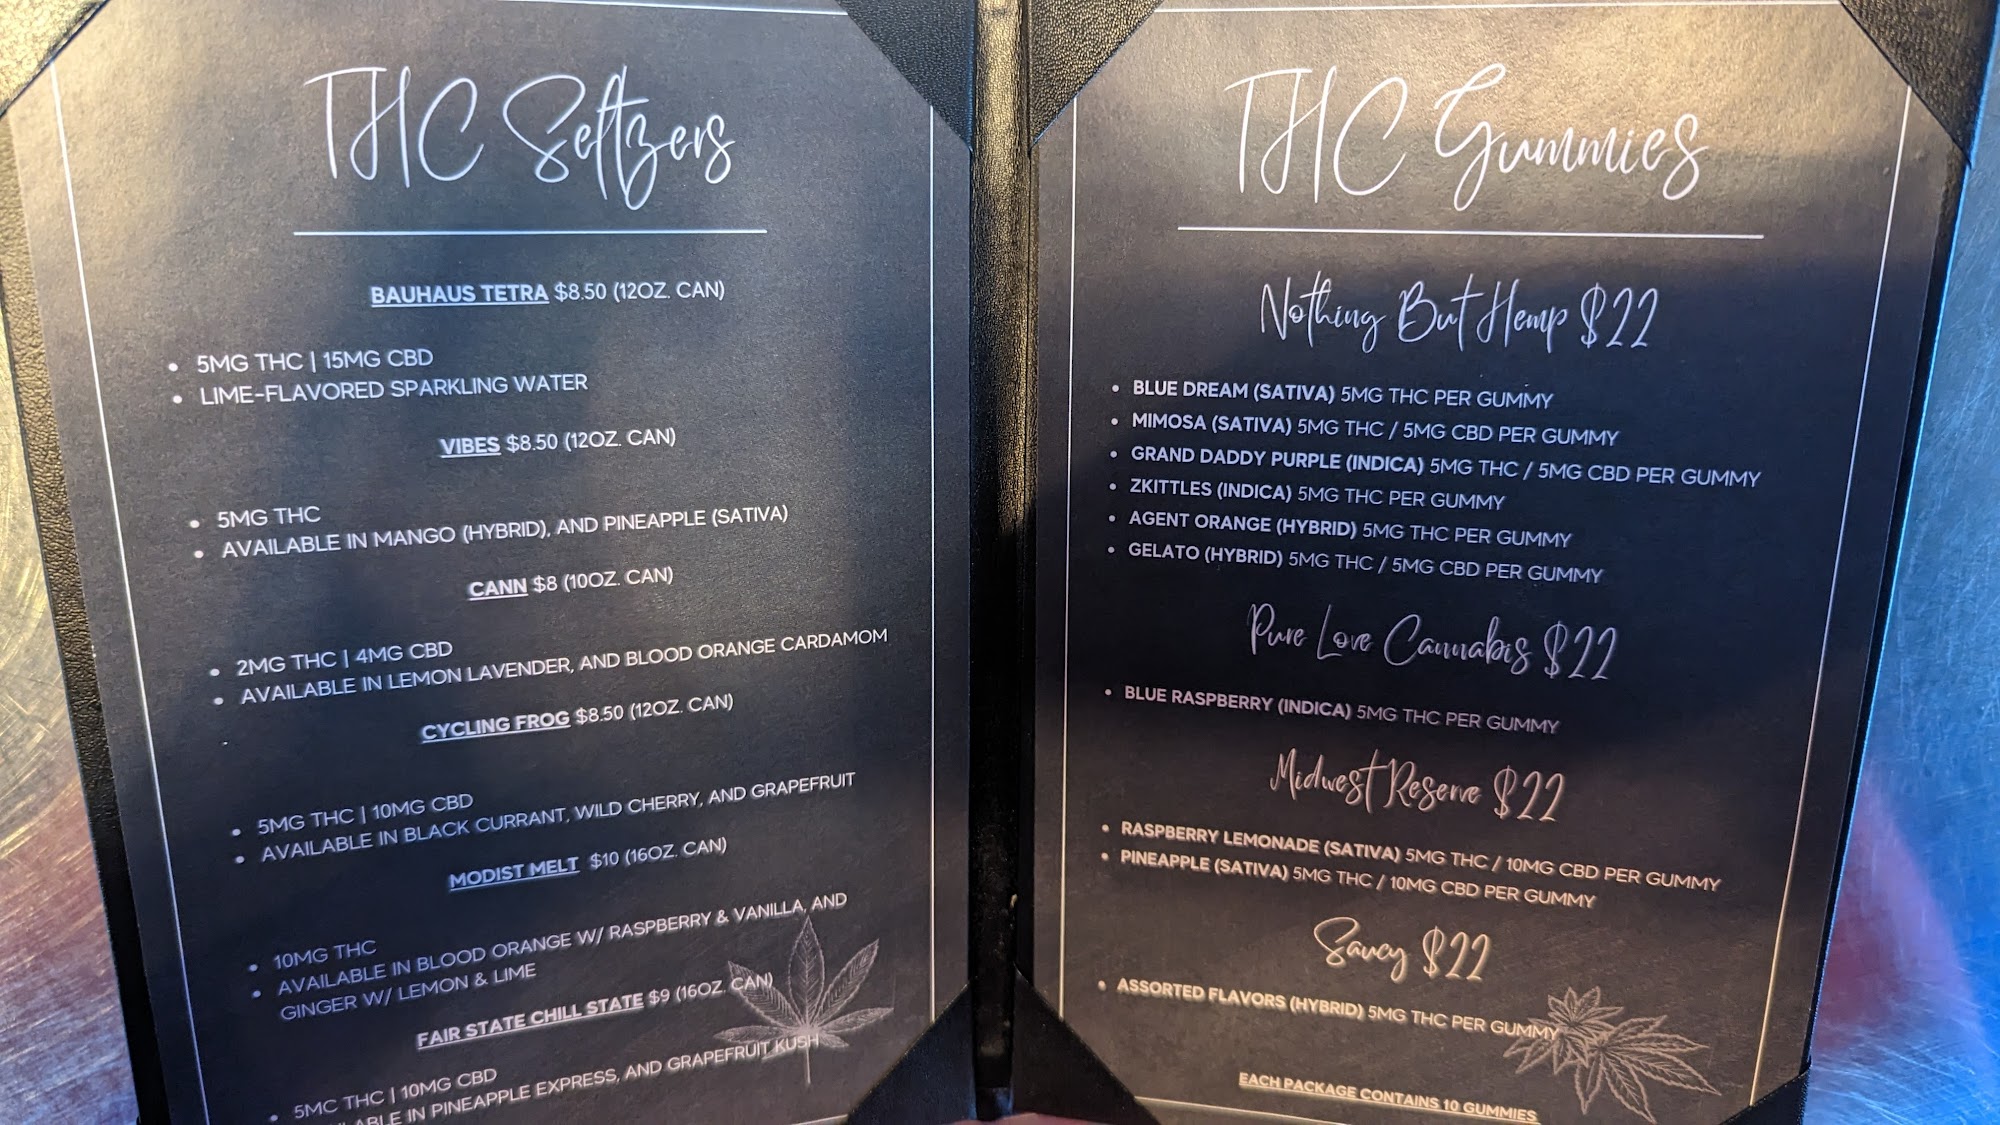 THC Seltzers
BAUHAUS TETRA $8.50 (12OZ. CAN)
• 5MG THC | 15MG CBD
• LIME-FLAVORED SPARKLING WATER
VIBES $8.50 (12OZ. CAN)
• 5MG THC
• AVAILABLE IN MANGO (HYBRID), AND PINEAPPLE (SATIVA)
CANN $8 (10OZ. CAN)
• 2MG THC | 4MG CBD
• AVAILABLE IN LEMON LAVENDER, AND BLOOD ORANGE CARDAMOM
CYCLING FROG $8.50 (12OZ. CAN)
• 5MG THC | 10MG CBD
• AVAILABLE IN BLACK CURRANT, WILD CHERRY, AND GRAPEFRUIT
MODIST MELT $10 (16OZ. CAN)
• 10MG THC
• AVAILABLE IN BLOOD ORANGE W/ RASPBERRY & VANILLA, AND
GINGER W/ LEMON & LIME
FAIR STATE CHILL STATE $9 (16OZ. CAN)
• 5MC THC | 10MG CBD
ILABLE IN PINEAPPLE EXPRESS, AND GRAPEFRUIT KUSH
THC Gummies
Nothing But Hemp $22
• BLUE DREAM (SATIVA) 5MG THC PER GUMMY
• MIMOSA (SATIVA) 5MG THC / 5MG CBD PER GUMMY
• GRAND DADDY PURPLE (INDICA) 5MG THC / 5MG CBD PER GUMMY
• ZKITTLES (INDICA) 5MG THC PER GUMMY
• AGENT ORANGE (HYBRID) 5MG THC PER GUMMY
• GELATO (HYBRID) 5MG THC / 5MG CBD PER GUMMY
Pure Love Cannabis $22
• BLUE RASPBERRY (INDICA) 5MG THC PER GUMMY
Midwest Reserve $22
• RASPBERRY LEMONADE (SATIVA) 5MG THC / 10MG CBD PER GUMMY
• PINEAPPLE (SATIVA) 5MG THC / 10MG CBD PER GUMMY
Saucy $22
• ASSORTED FLAVORS (HYBRID) 5MG THC PER GUMMY
EACH PACKAGE CONTAINS 10 GUMMIES